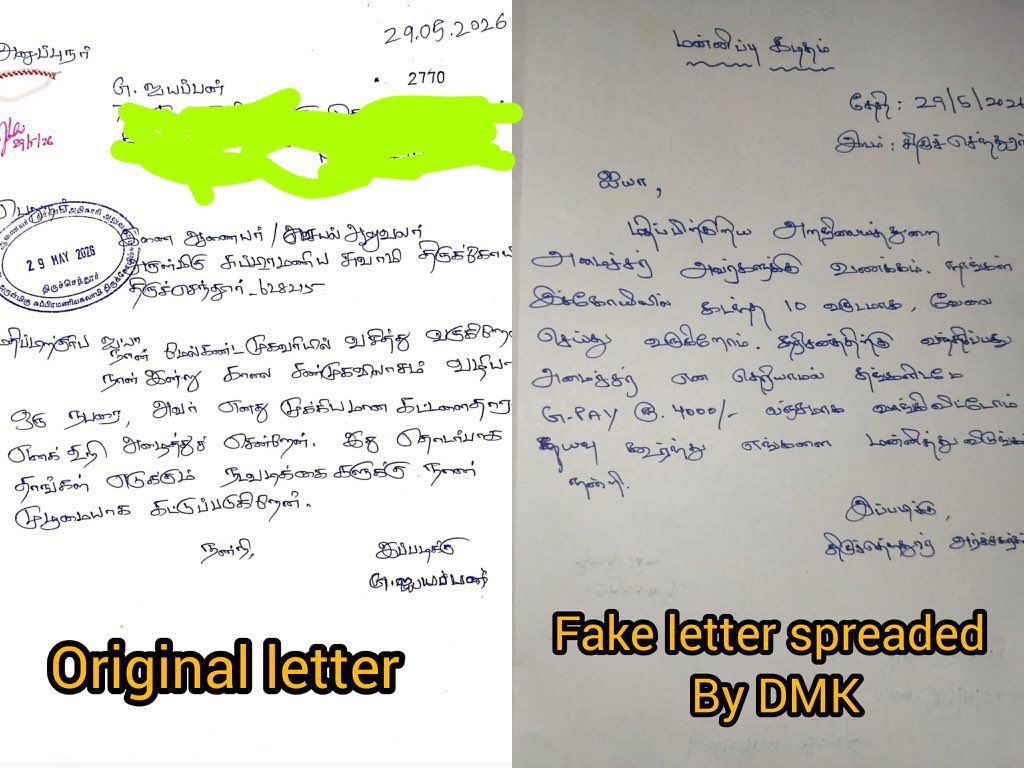 29.05.2026
அனுப்புநர்
2770
கு. ஐயப்பன்
29/5/26
பெறுநர்
29 MAY 2026
திருச்செந்தூர்
இணை ஆணையர் / செயல் அலுவலர்
அருள்மிகு சுப்பிரமணிய சுவாமி திருக்கோயி
திருச்செந்தூர் - 628215
ஐயா
நான் மேல்கண்ட முகவரியில் வசித்து வருகிறே
நான் இன்று காலை சண்முகவிலாசம் வழியா
ஒரு நபரை, அவர் எனது முக்கியமான கட்டளைதார
எனக் கூறி அழைத்துச் சென்றேன். இது தொடர்பாக
தாங்கள் எடுக்கும் நடவடிக்கைகளுக்கு நான்
முழுமையாக கட்டுப்படுகிறேன்.
நன்றி,
இப்படிக்கு
கு. ஐயப்பன்
Original letter
மன்னிப்பு கடிதம்
தேதி : 29/5/2026
இடம் : திருச்செந்தூர்
ஐயா,
மதிப்பிற்குரிய அறநிலையத்துறை
அமைச்சர் அவர்களுக்கு வணக்கம். நாங்கள்
இக்கோயிலில் கடந்த 10 வருடமாக, வேலை
செய்து வருகிறோம். தரிசனத்திற்கு வந்திப்பது
அமைச்சர் என தெரியாமல் தங்களிடமே
G-PAY ரூ. 4000/- லஞ்சமாக வாங்கிவிட்டோம்
தயவு கூர்ந்து எங்களை மன்னித்து விடுங்க
நன்றி.
இப்படிக்கு,
திருச்செந்தூர் அர்ச்சகர்கள்
Fake letter spreaded
By DMK